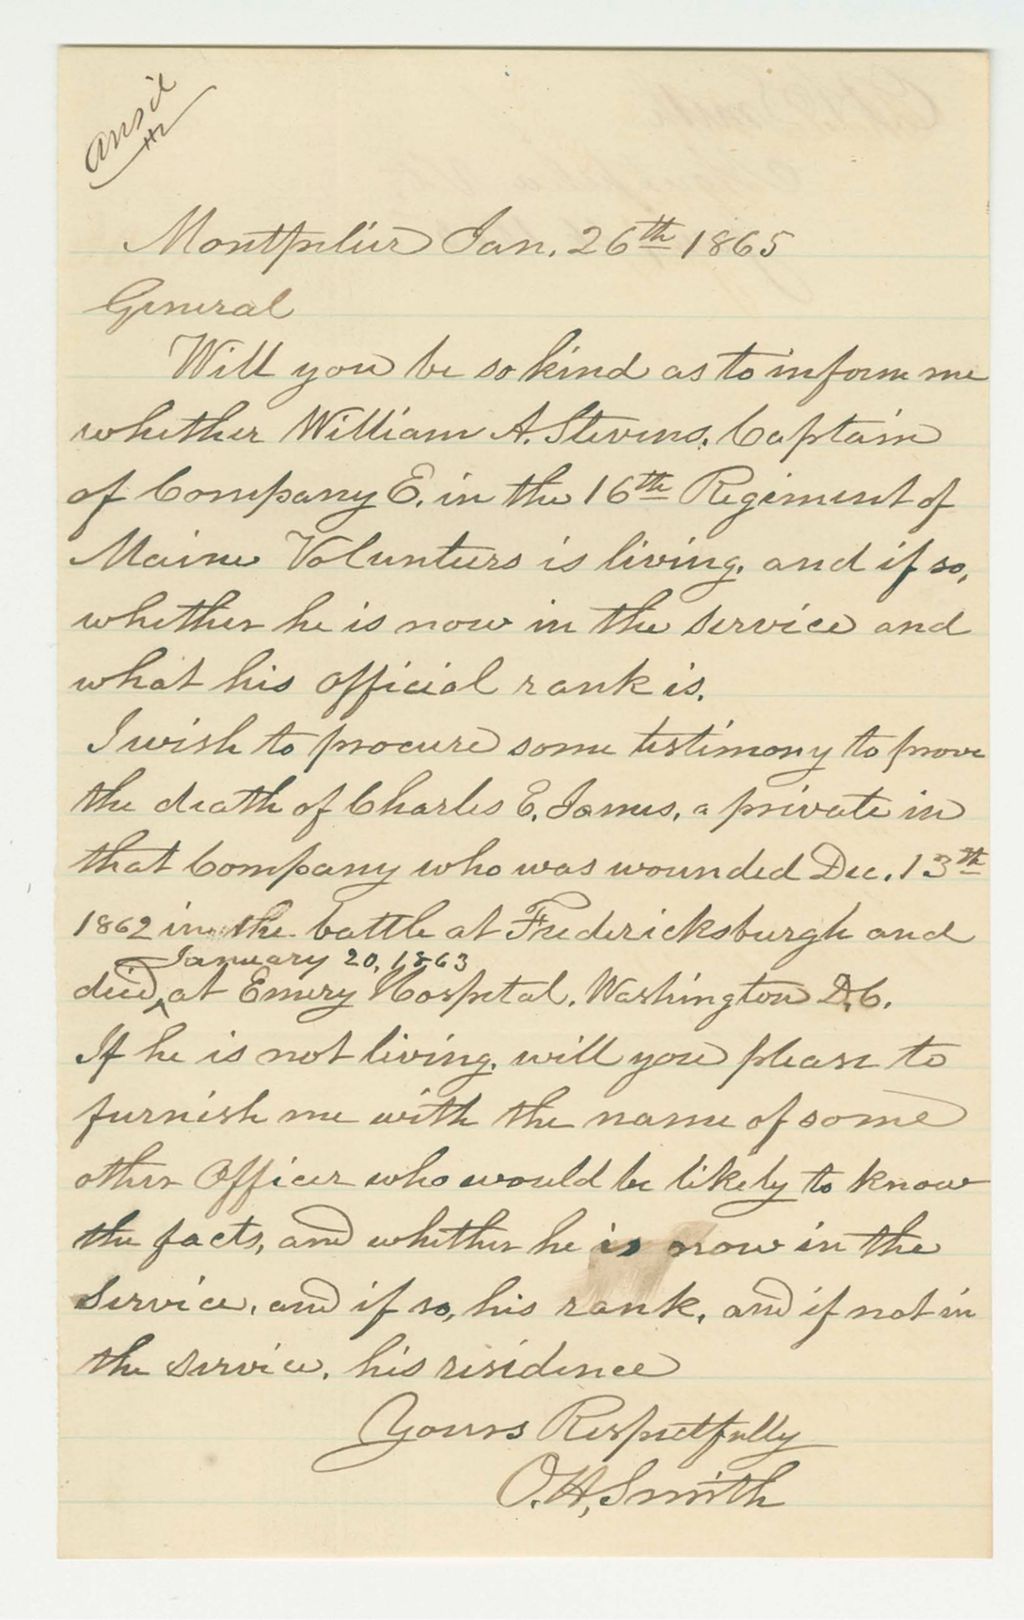 Montpelier Jan. 26th 1865
General
Will you be so kind as to inform me
whether William A. Stevens, Captain
of Company E. in the 16th Regiment of
Maine Volunteers is living, and if so,
whether he is now in the service and
what his official rank is.
I wish to procure some testimony to prove
the death of Charles E. James, a private in
that Company who was wounded Dec. 13th
1862 in the battle at Fredericksburgh and
January 20, 1863
died at Emery Hospital, Washington D.C.
If he is not living, will you please to
furnish me with the name of some
other Officer who would be likely to know
the facts, and whether he is now in the
service, and if so, his rank, and if not in
the service, his residence
Yours Respectfully
O. H. Smith